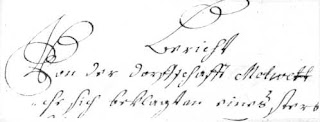 Bericht
Von der dorffschafft Molwitt
che sich beklagten eines sters